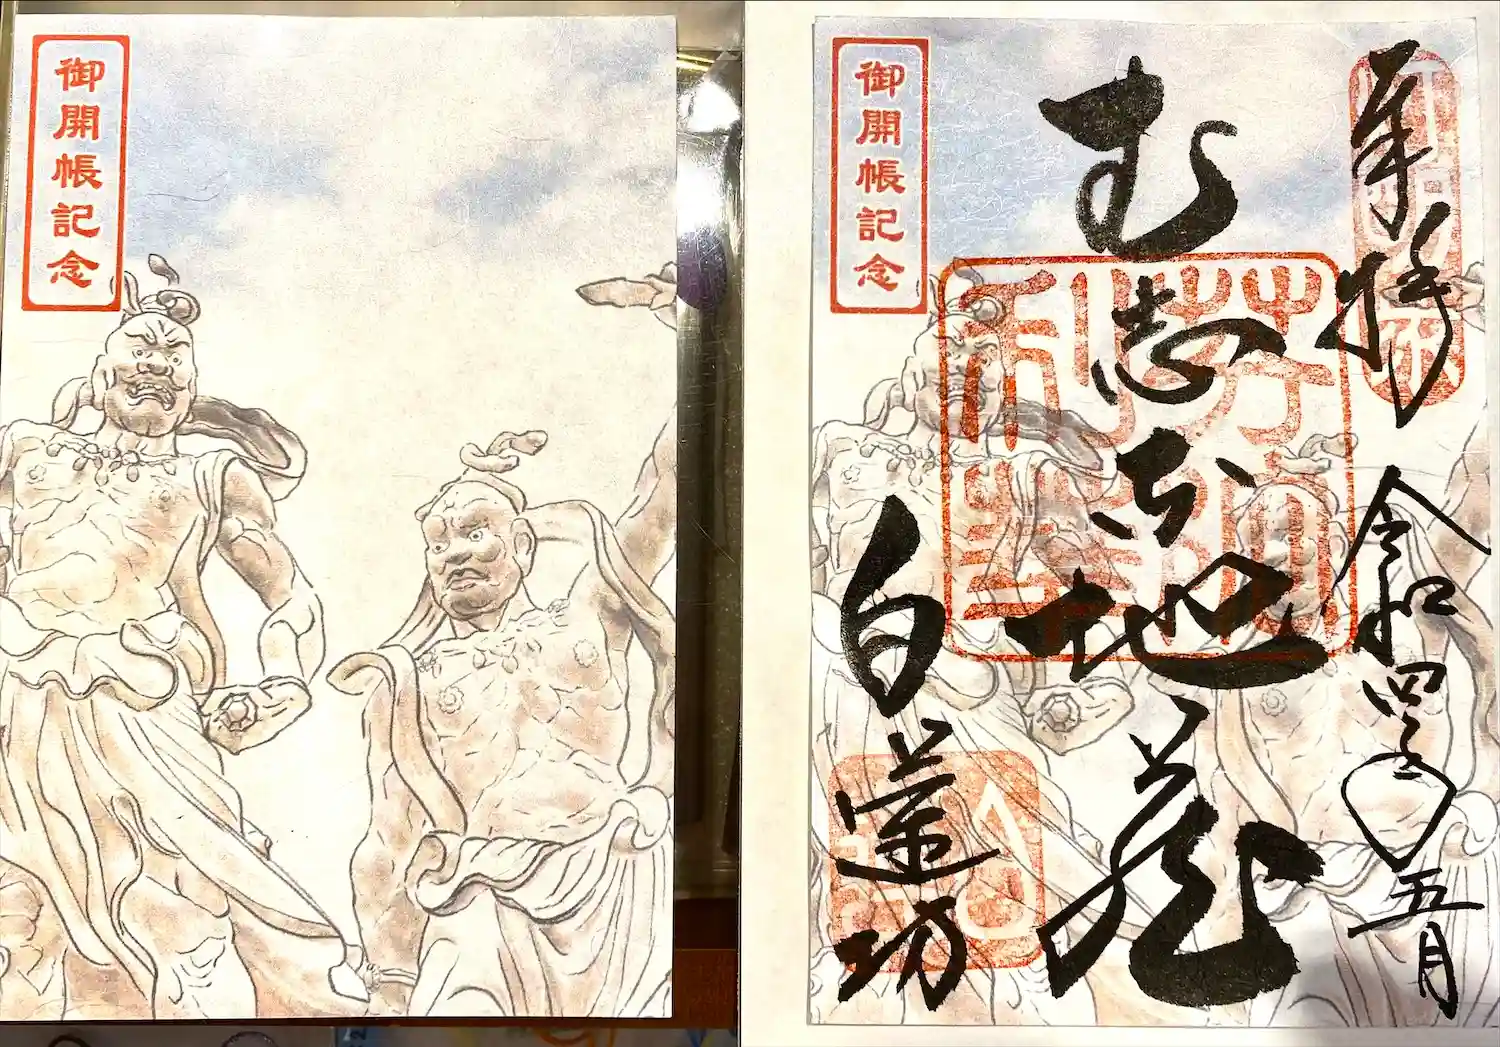 御開帳記念
御開帳記念
奉拝 令和四年五月
む志な地蔵
白蓮坊